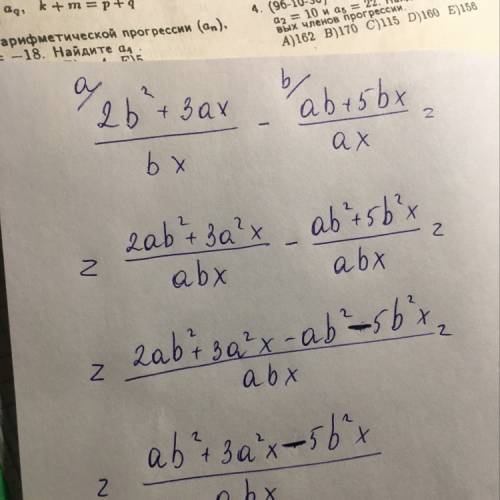 a_q, k + m = p + q
арифметической прогрессии (a_n),
= −18. Найдите a_4.
4. (96-10-36)
a_2 = 10 и a_5 = 22.
вых членов прогрессии.
A)162 B)170 C)115 D)160 E)156
a/ (2b² + 3ax)/(bx) − b/ (ab + 5bx)/(ax) =
= (2ab² + 3a²x)/(abx) − (ab² + 5b²x)/(abx) =
= (2ab² + 3a²x − ab² − 5b²x)/(abx) =
= (ab² + 3a²x − 5b²x)/(abx)